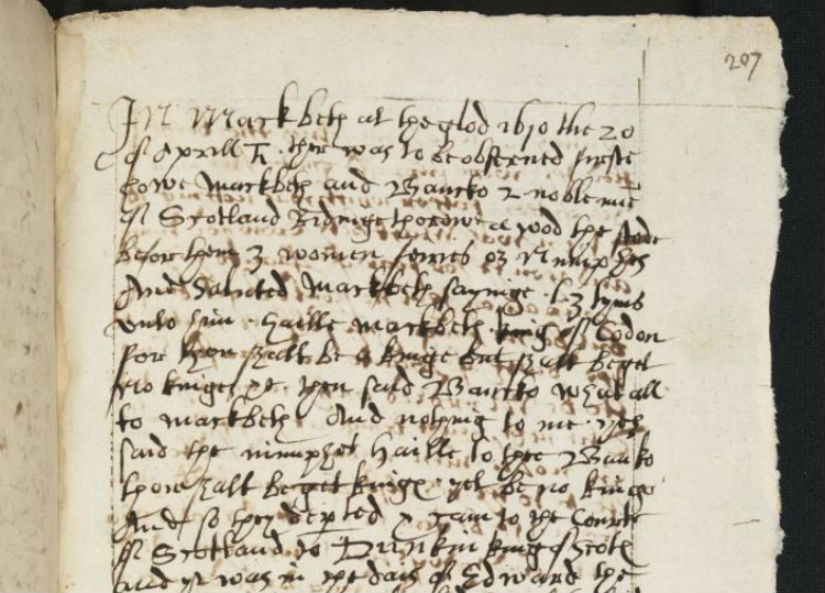 207
In Mackbeth at the glod 1610 the 20
of Aprill ♄. ther was to be obserued firste
howe Mackbeth and Bancko 2 noble men
of Scotland Ridinge thorowe a wod the stode
befor them 3 women feiries or Nimphes
And Saluted Mackbeth sayinge. 3 tyms
vnto him. haille mackbeth. king of Codon
for thou shalt be a kinge but shalt beget
No kinges &c. then said Bancko what all
to mackbeth And nothing to me. yes
said the nimphes haille to thee Banko
thou shalt beget kinges. yet be no kinge
And so they depted & cam to the Courte
of Scotland to Dunkin king of Scotes
and yt was in the dais of Edward the